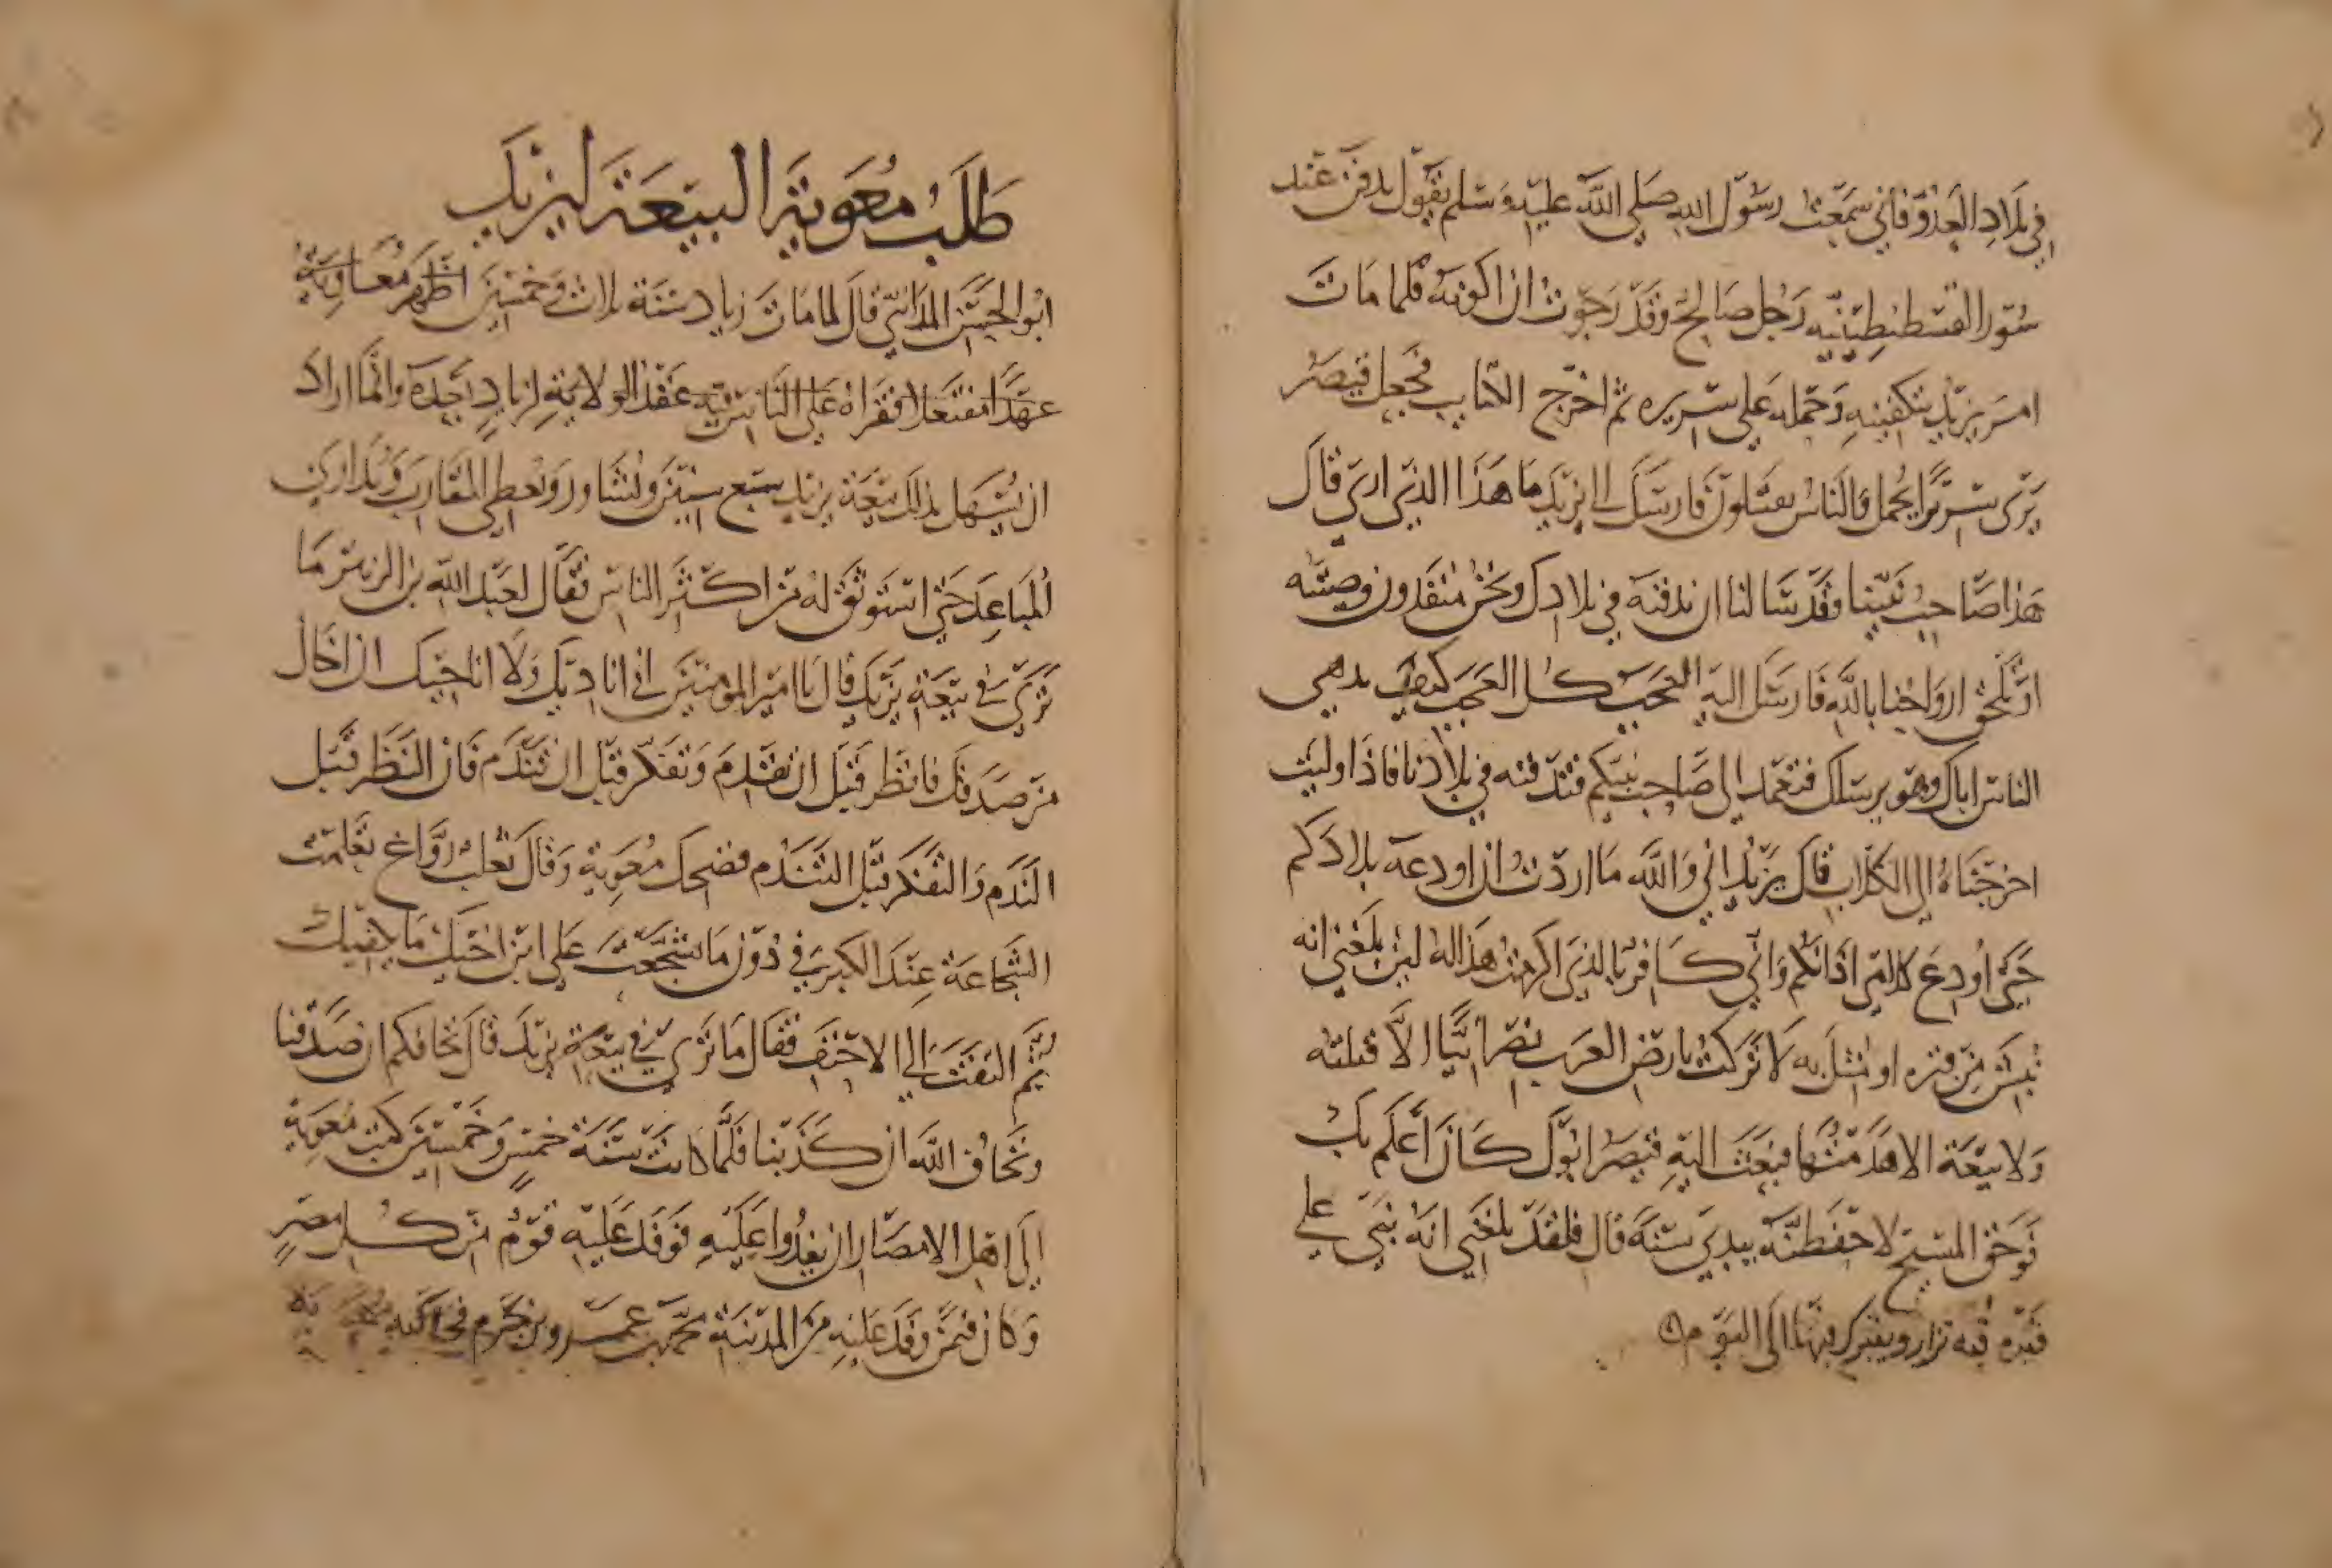 في بلاد العدو فاني سمعت رسول الله صلى الله عليه وسلم يقول يدفن عند
سور القسطنطينيه رجل صالح وقد رجوت ان اكونه فلما مات
امر يزيد بتكفينه وحمله على سريره ثم اخرج الكتايب فجعل قيصر
يرى سريرا يحمل والناس يقتتلون فارسل الى يزيد ما هذا الذي ارى قال
هذا صاحب نبينا وقد سالنا ان ندفنه في بلادك ونحن منفذون وصيته
او تلحق ارواحنا بالله فارسل اليه العجب كل العجب كيف يدهي
الناس اباك وهو يرسلك فتعمد الى صاحب نبيكم فتدفنه في بلادنا فاذا وليت
اخرجناه الى الكلاب قال يزيد اني والله ما اردت ان اودعه بلادكم
حتى اودع كلامي اذانكم واني كافر بالذي اكرمت هذا له لين بلغني انه
نبش من قبره او مثل به لا تركت بارض العرب نصرانيا الا قتلته
ولا بيعة الا هدمتها فبعث اليه قيصر ابوك كان اعلم بك
فوحق المسيح لاحفظنه بيدي سنة قال فلقد بلغني انه بنى على
قبره قبه تزار ويتبرك بها الى اليوم
طلب معوية البيعة ليزيد
ابو الحسن المدايني قال لما مات زياد سنة ثلاث وخمسين اظهر معاوية
عهدا مفتعلا فقراه على الناس فيه عقد الولاية ليزيد بعده وانما اراد
ان يسهل بذلك بيعة يزيد سبع سنين ويشاور ويعطي المقارب ويداري
المباعد حتى استوثق له من اكثر الناس فقال لعبد الله بن الزبير ما
ترى في بيعة يزيد قال يا امير المومنين اني اناديك ولا اناجيك ان اخاك
من صدقك فانظر قبل ان تقدم وتفكر قبل ان تندم فان النظر قبل
التقدم والتفكر قبل التندم فضحك معوية وقال ثعلب رواغ تعلمت
الشجاعة عند الكبر في دون ما تشجعت على ابن اخيك ما يكفيك
ثم التفت الى الاحنف فقال ما ترى في بيعة يزيد قال نخافكم ان صدقنا
ونخاف الله ان كذبنا فلما كانت سنة خمس وخمسين كتب معوية
الى اهل الامصار ان يفدوا عليه فوفد عليه قوم من كل مصر
وكان فيمن وفد عليه من المدينة محمد بن عمرو بن حزم